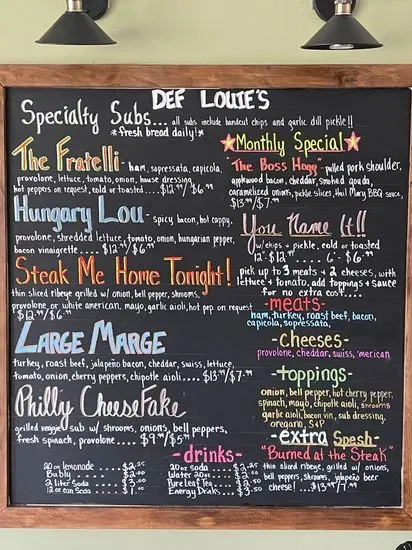 DEF LOUIE'S
Specialty Subs... all subs include handcut chips and garlic dill pickle!!
*fresh bread daily!*
The Fratelli - ham, sopressata, capicola,
provolone, lettuce, tomato, onion, house dressing
hot peppers on request, cold or toasted.... $12.99/$6.99
Hungary Lou - spicy bacon, hot cappy,
provolone, shredded lettuce, tomato, onion, hungarian pepper,
bacon vinaigrette..... $12.99/$6.99
Steak Me Home Tonight!
thin sliced ribeye grilled w/ onion, bell pepper, shrooms,
provolone or white american, mayo, garlic aioli, hot pep on request
$12.99/$6.99
LARGE MARGE
turkey, roast beef, jalapeño bacon, cheddar, swiss, lettuce,
tomato, onion, cherry peppers, chipotle aioli.... $13.99/$7.99
Philly CheeseFake
grilled veggie sub w/ shrooms, onions, bell peppers,
fresh spinach, provolone.... $9.99/$5.99
Monthly Special
"The Boss Hogg" - pulled pork shoulder,
applewood bacon, cheddar, smoked gouda,
caramelized onions, pickle slices, Hail Mary BBQ sauce,
$13.99/$7.99
You Name It!!
w/ chips & pickle, cold or toasted
12" $12.99.... 6" - $6.99
pick up to 3 meats & 2 cheeses, with
lettuce & tomato, add toppings & sauce
for no extra cost....
-meats-
ham, turkey, roast beef, bacon,
capicola, sopressata,
-cheeses-
provolone, cheddar, swiss, 'merican
-toppings-
onion, bell pepper, hot cherry pepper,
spinach, mayo, chipotle aioli, shrooms
garlic aioli, bacon vin, sub dressing,
oregano, S+P
-extra Spesh-
"Burned at the Steak"
thin sliced ribeye, grilled w/ onions,
bell peppers, shrooms, jalapeño beer
cheese! ... $13.99/7.99
-drinks-
20oz lemonade.... $2.25
Bubly..... $2.00
2 liter Soda.... $3.00
12oz can Soda.... $1.00
20oz soda..... $2.25
Water 20oz.... $2.00
Pure Leaf Tea.... $2.50
Energy Drinks.... $3.50